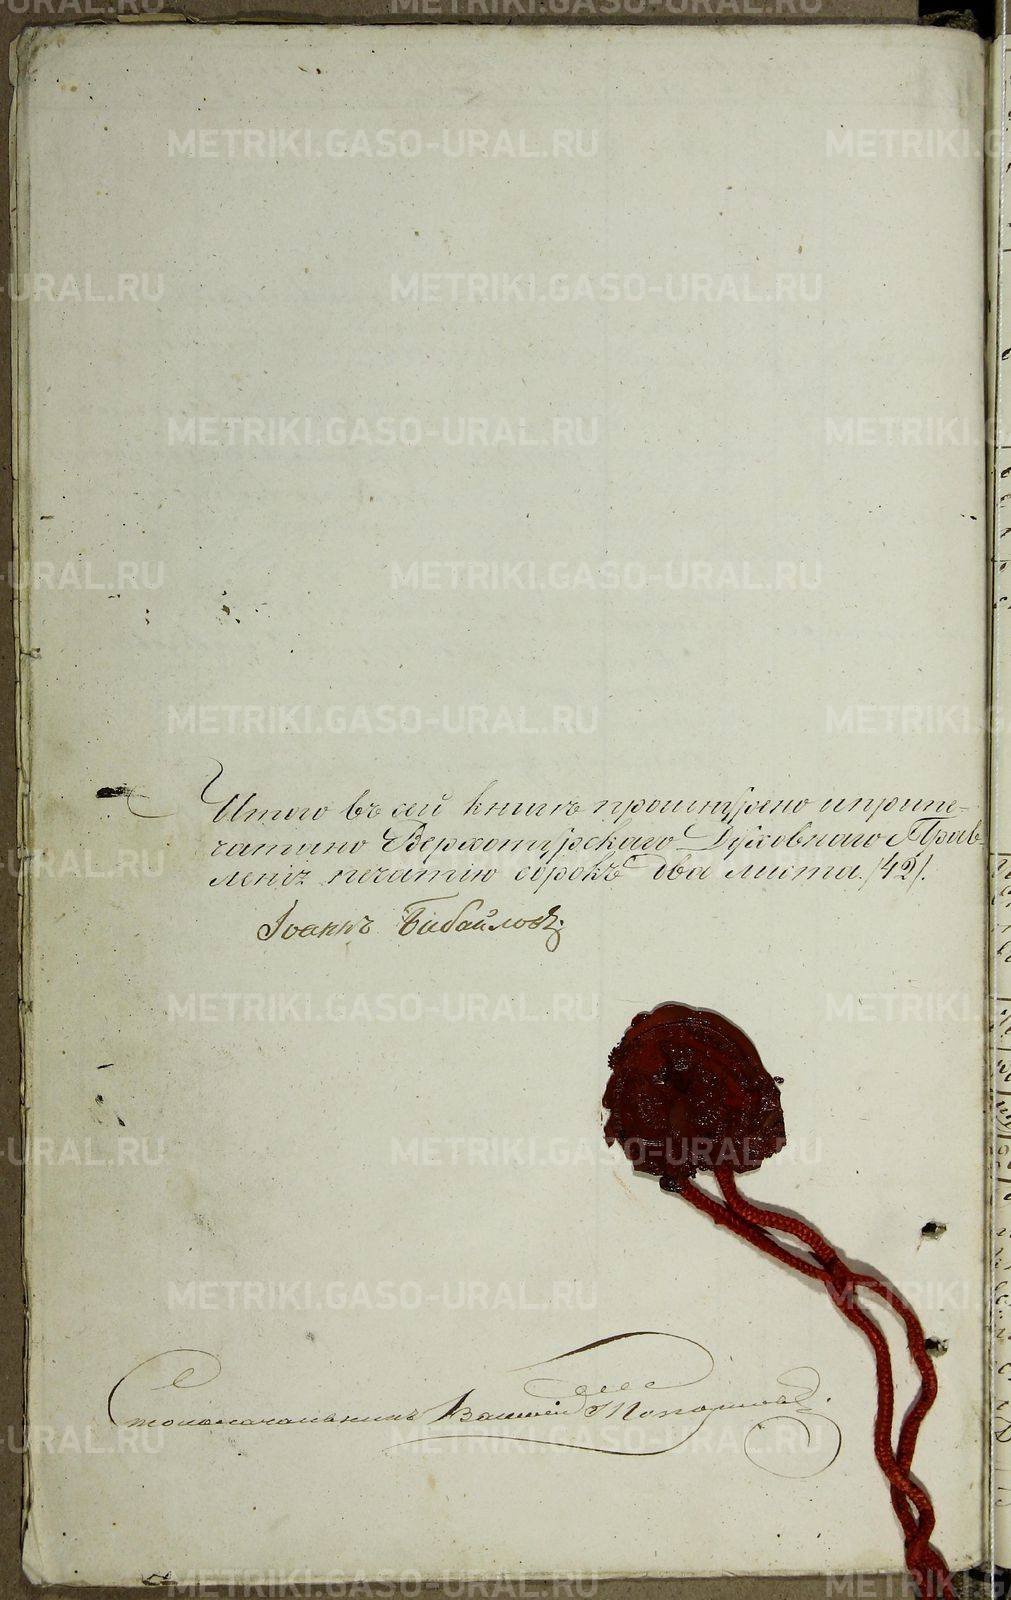 Итого въ сей книгѣ прошнурено и припе-
чатано Верхотурскаго Духовнаго Прав-
ленія печатію сорокъ два листа. /42/.
Іоаннъ Бабайловъ.
Столоначальникъ Василій
METRIKI.GASO-URAL.RU